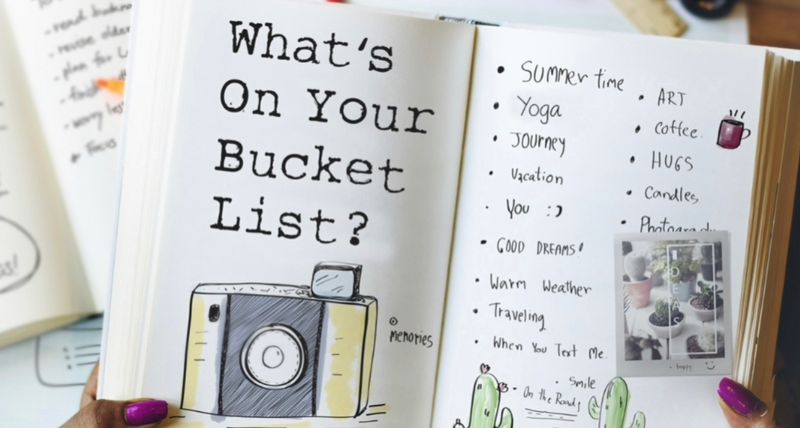 - read
- revise older
- plan for
- finish
- worry less
Focus
What's
On Your
Bucket
List?
memories
• SUMMER time
• Yoga
• JOURNEY
• Vacation
• You :)
• GOOD DREAMS!
• Warm Weather
• Traveling
• When You Text Me
• Smile
• On the Road
• ART
• Coffee.
• HUGS
• Candles
• Photography
IDEAS
- happy